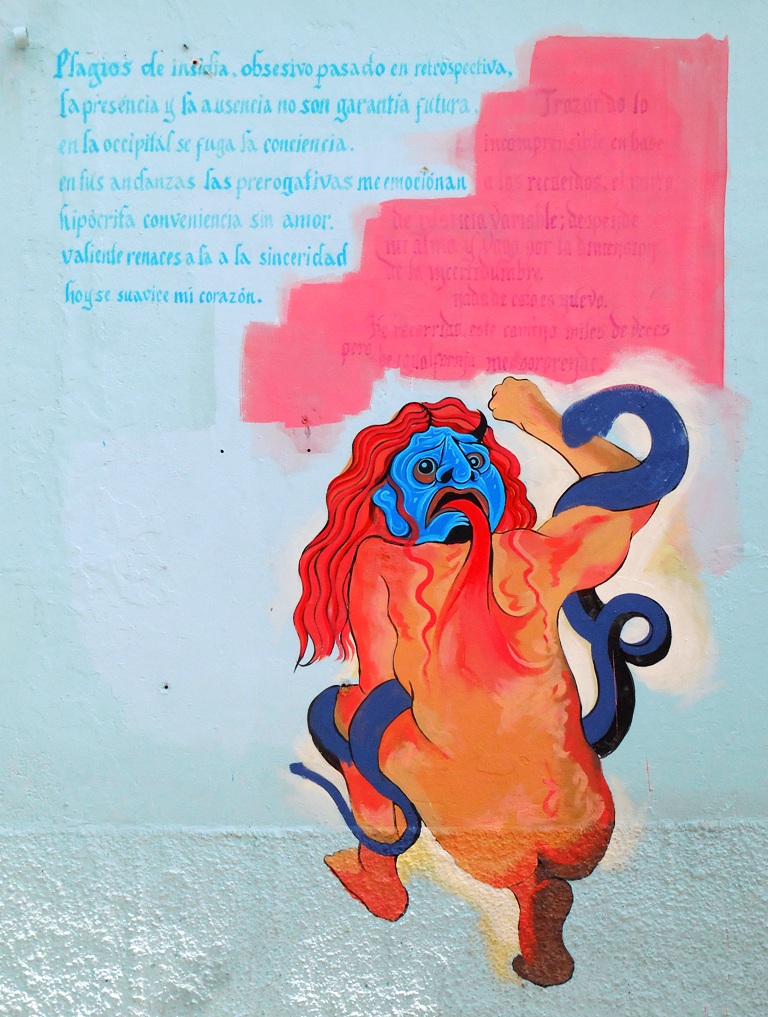 Plagios de insidia, obsesivo pasado en retrospectiva,
la presencia y la ausencia no son garantía futura.
en la occipital se fuga la conciencia.
en tus andanzas las prerogativas me emocionan
hipócrita conveniencia sin amor.
valiente renaces a la a la sinceridad
hoy se suavice mi corazón.
Trozando lo
incomprensible en base
a los recuerdos, el
de justicia variable; despende
mi alma y vaga por la dimensión
de la incertidumbre.
nada de esto es nuevo.
He recorrido este camino miles de veces
pero de igual forma me sorprende.